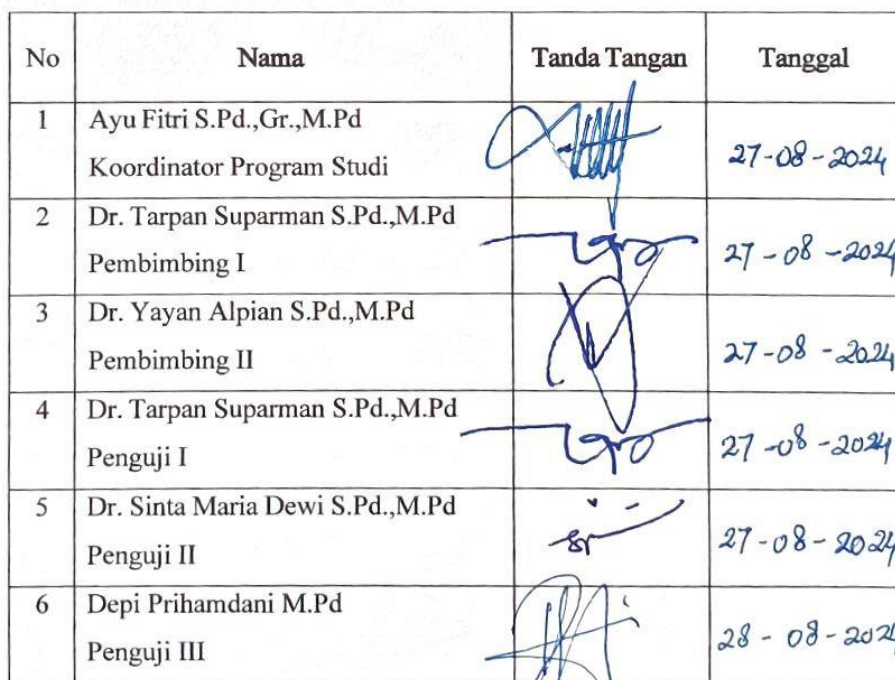 No Nama Tanda Tangan Tanggal
1 Ayu Fitri S.Pd.,Gr.,M.Pd
Koordinator Program Studi 27-08-2024
2 Dr. Tarpan Suparman S.Pd.,M.Pd
Pembimbing I 27-08-2024
3 Dr. Yayan Alpian S.Pd.,M.Pd
Pembimbing II 27-08-2024
4 Dr. Tarpan Suparman S.Pd.,M.Pd
Penguji I 27-08-2024
5 Dr. Sinta Maria Dewi S.Pd.,M.Pd
Penguji II 27-08-2024
6 Depi Prihamdani M.Pd
Penguji III 28-08-2024